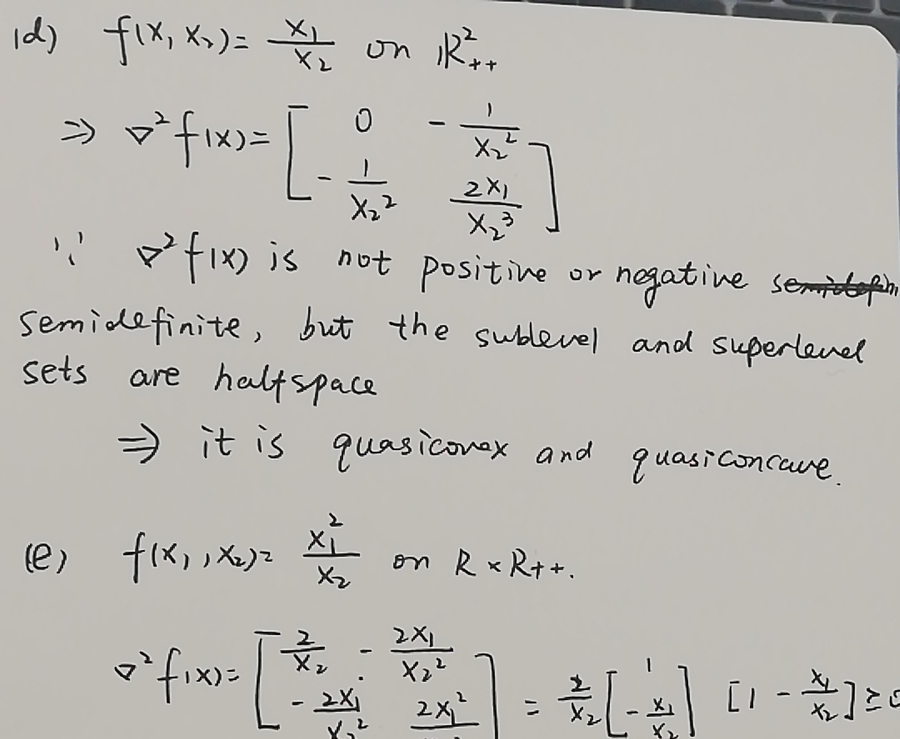 (d) f(x, x₂) = x₁/x₂ on ℝ²₊₊
⇒ ∇²f(x) = [ 0  -1/x₂² ; -1/x₂²  2x₁/x₂³ ]
∵ ∇²f(x) is not positive or negative
semidefinite, but the sublevel and superlevel
sets are halfspace
⇒ it is quasiconex and quasiconcave.
(e) f(x₁, x₂) = x₁²/x₂ on R × R₊₊.
∇²f(x) = [ 2/x₂  -2x₁/x₂² ; -2x₁/x₂²  2x₁² ] = 2/x₂ [ 1 ; -x₁/x₂ ] [1 -x₁/x₂] ≥ 0